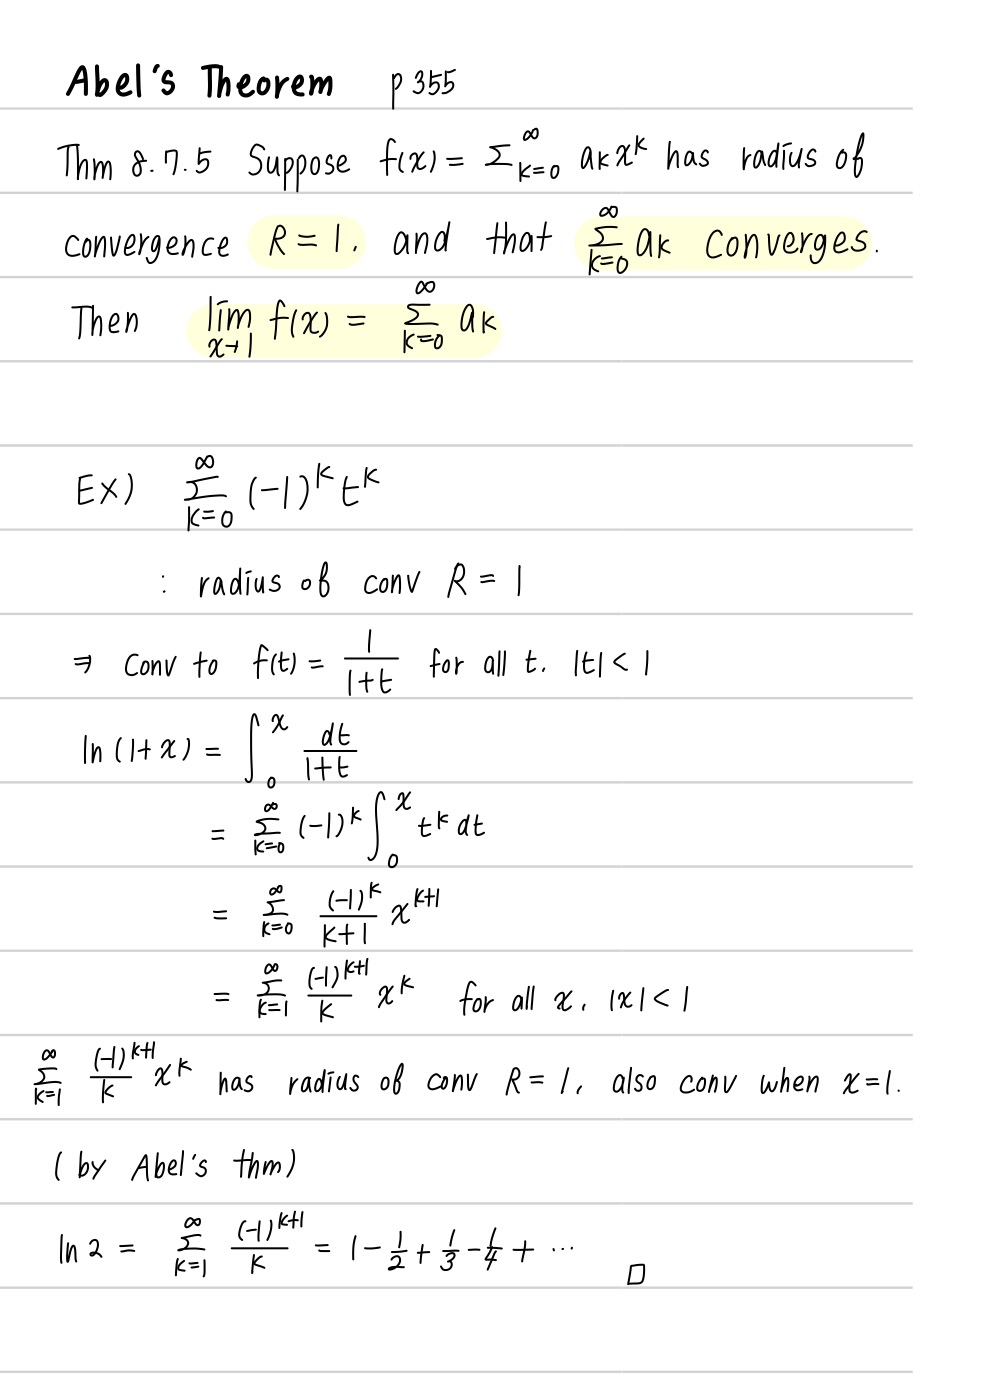 Abel's Theorem p355
Thm 8.7.5 Suppose f(x) = Σ_{k=0}^{∞} a_k x^k has radius of
convergence R = 1, and that Σ_{k=0}^{∞} a_k Converges.
Then lim_{x→1} f(x) = Σ_{k=0}^{∞} a_k
Ex) Σ_{k=0}^{∞} (-1)^k t^k
: radius of conv R = 1
⇒ Conv to f(t) = 1/(1+t) for all t, |t| < 1
ln(1+x) = ∫_0^x dt/(1+t)
= Σ_{k=0}^{∞} (-1)^k ∫_0^x t^k dt
= Σ_{k=0}^{∞} (-1)^k/(k+1) x^{k+1}
= Σ_{k=1}^{∞} (-1)^{k+1}/k x^k for all x, |x| < 1
Σ_{k=1}^{∞} (-1)^{k+1}/k x^k has radius of conv R = 1, also conv when x=1.
(by Abel's thm)
ln 2 = Σ_{k=1}^{∞} (-1)^{k+1}/k = 1 - 1/2 + 1/3 - 1/4 + ⋯ □